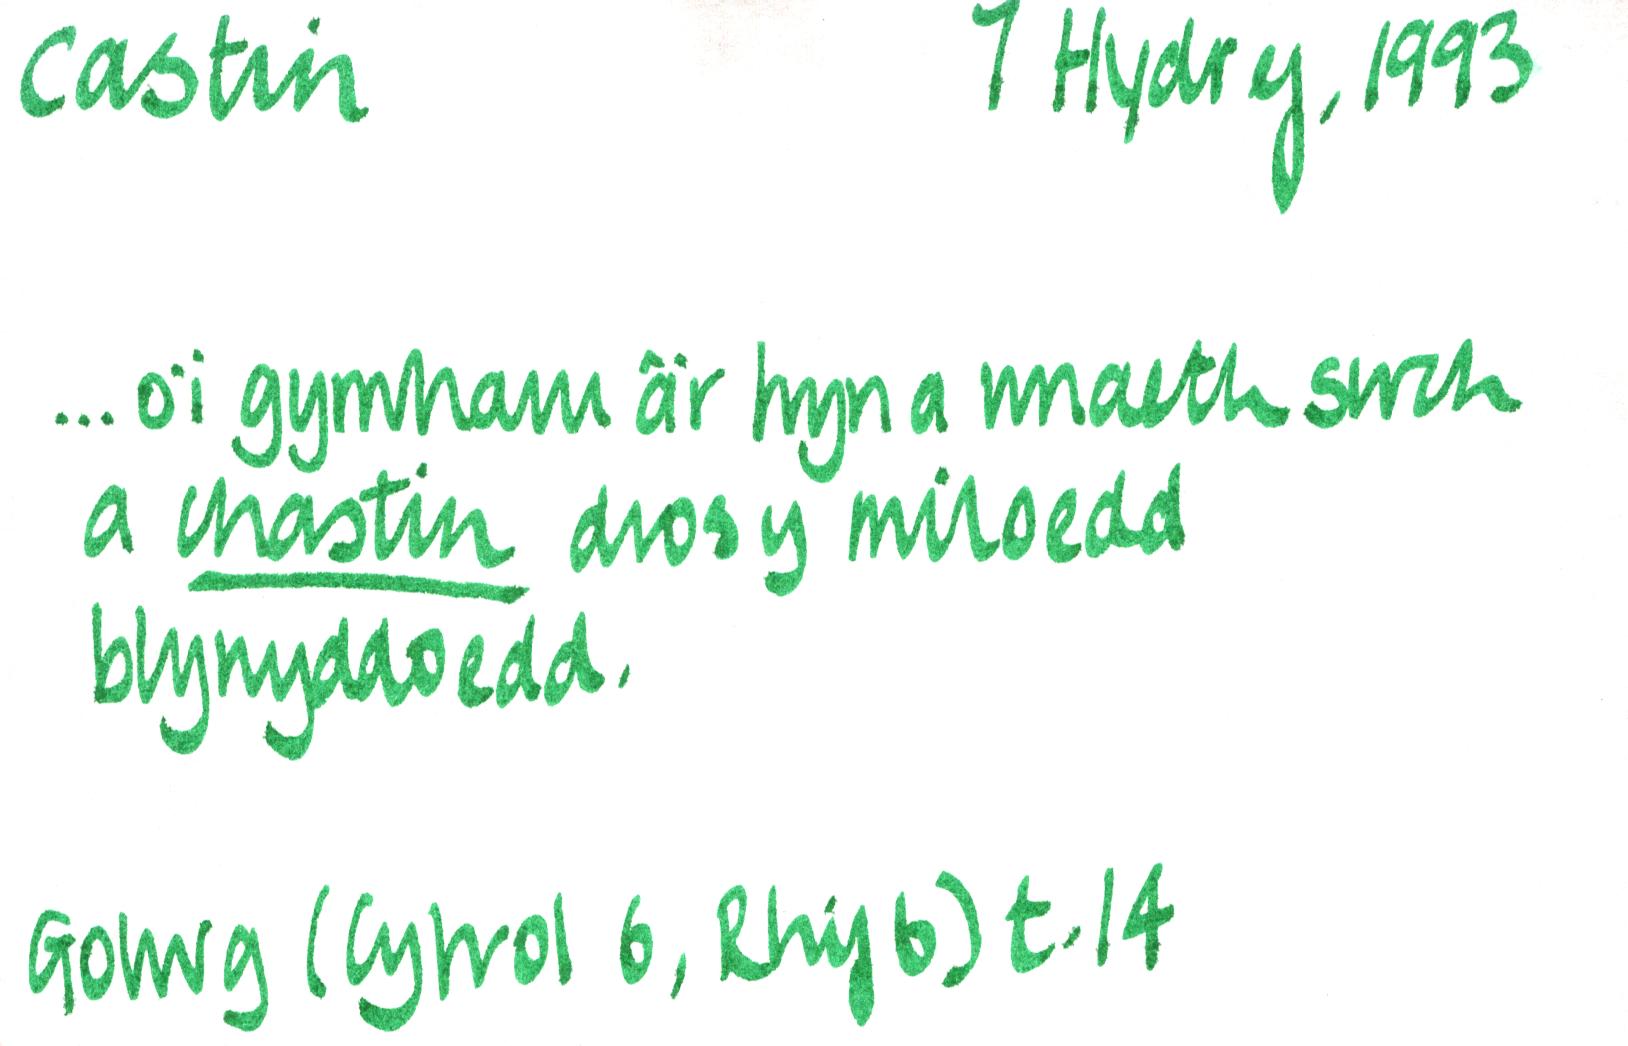 Castin 7 Hydref, 1993
...o'i gymharu â'r hyn a wnaeth swch
a chastin dros y miloedd
blynyddoedd.
Golwg (Cyfrol 6, Rhif 6) t.14